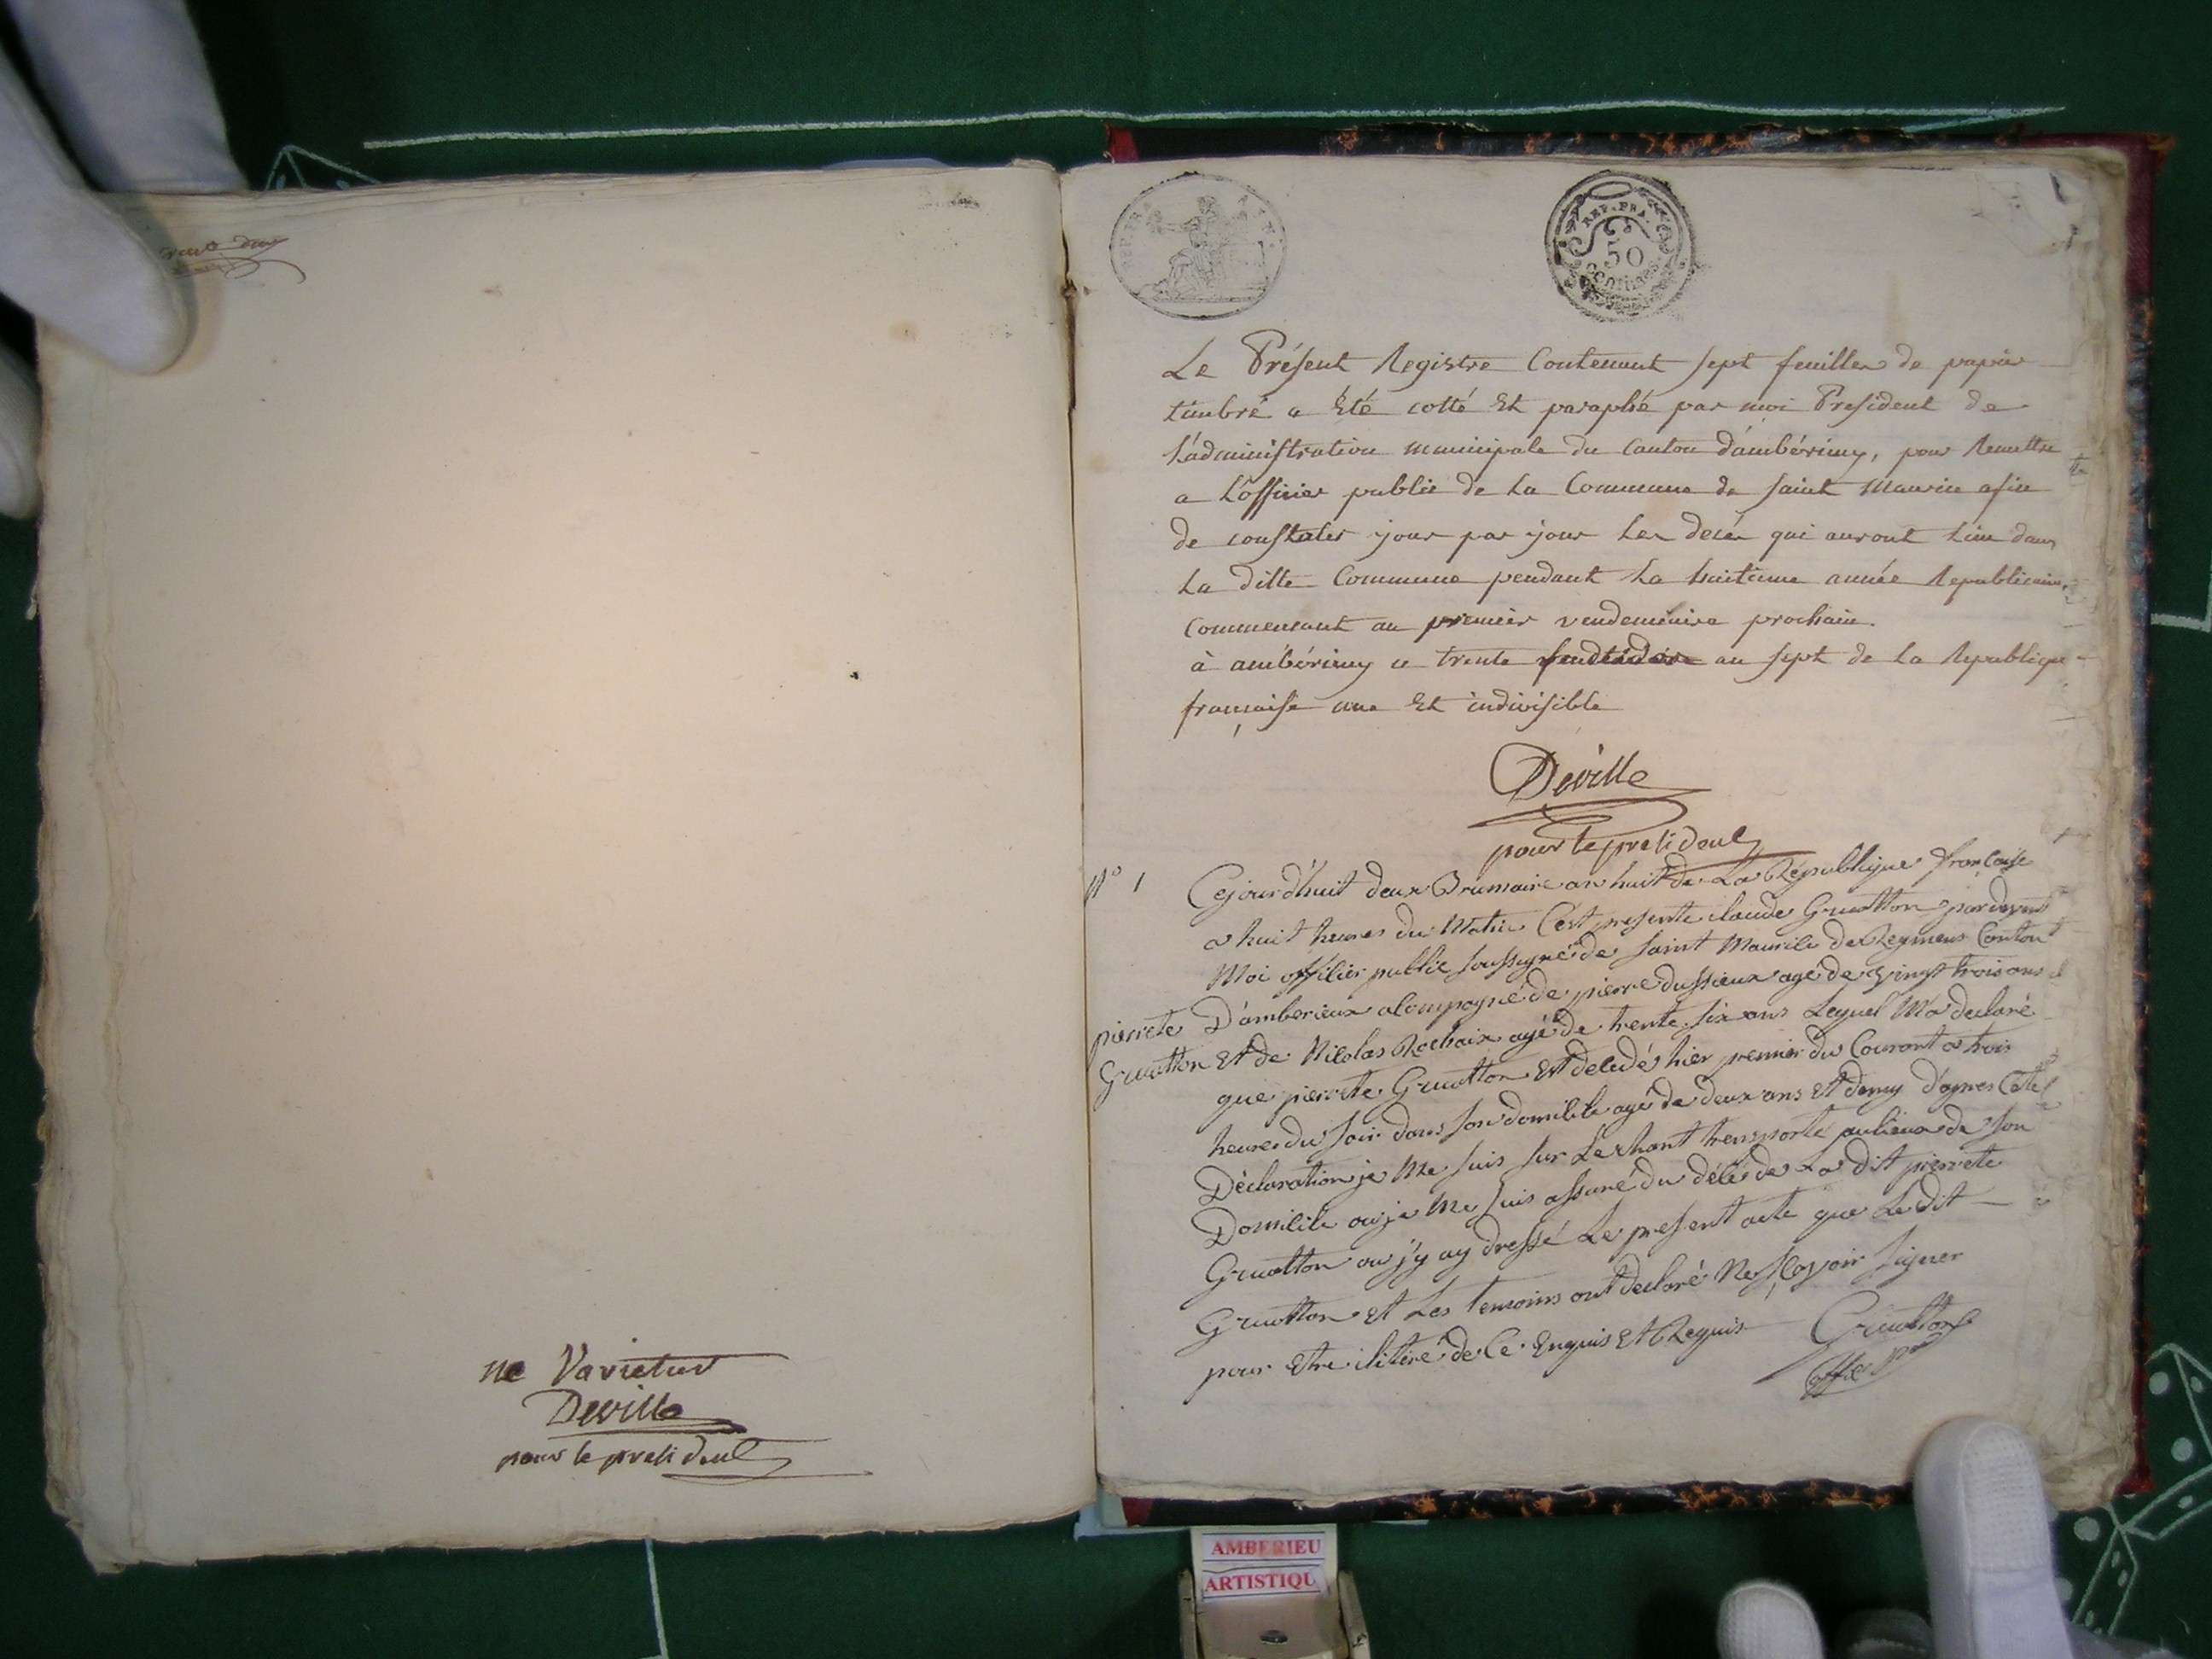 ne Varietur
Deville
pour le president
REP. FRA.
50
centimes
Le Présent Registre Contenant sept feuilles de papier
timbré a Été cotté Et paraphé par moi President de
L'administration municipale du canton d'ambérieux, pour Remettre
a L'officier public de La Commune de saint Maurice afin
de constater jour par jour Les decés qui auront Lieu dans
La ditte Commune pendant La huitieme année Republicaine,
Commencant au premier vendemiaire prochain.
à ambérieux ce trente fructidor an sept de La Republique
francaise une Et indivisible
Deville
pour le president
N° 1
Cejourd'huit deux Brumaire an huit de La République françoise
a huit heures du Matin C'est presenté claude Gruatton par devant
Moi offilier public soussigné de saint Maurile de Reymens Canton
D'amberieux alompagné de pierre dussieux agé de vingt trois ans
Et de Nilolas Rochaix agé de trente six ans Lequel M'a declaré
pierrete
Gruatton
que pierrete Gruatton Est deledés hier premier du Courant a trois
heures du soir dans son domilile agé de deux ans Et demy d'apres Cete
Déclaration je Me suis sur Le Chant transporté au lieux de son
Domilile ou je Me suis assuré du délés de La dit pierrete
Gruatton ou j'y ay dressé Le present acte que Le dit
Gruatton et Les temoins ont declaré Ne sçavoir signer
pour Etre ilitéré de Ce Enquis Et Requis
Gruatton
AMBERIEU
ARTISTIQU